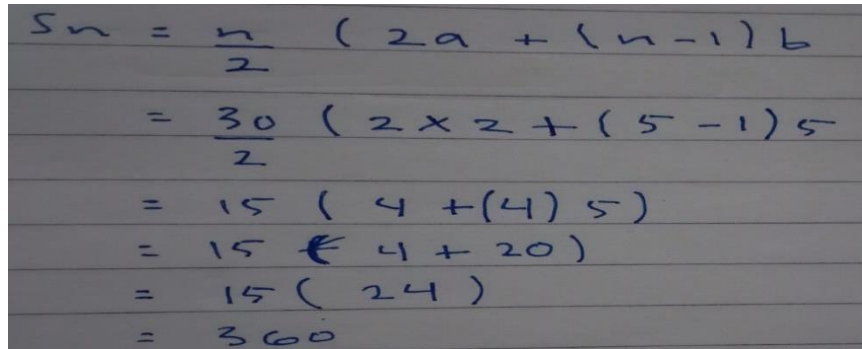 Sn = n/2 ( 2a + (n-1) b
= 30/2 ( 2 × 2 + ( 5 - 1 ) 5
= 15 ( 4 + (4) 5 )
= 15 ( 4 + 20 )
= 15 ( 24 )
= 360